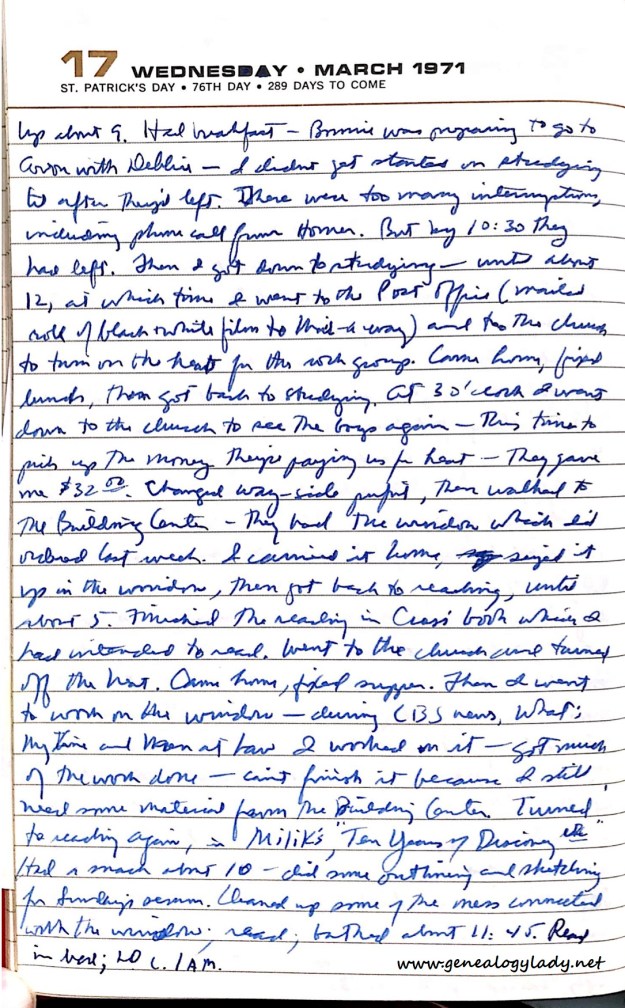 17 WEDNESDAY • MARCH 1971
ST. PATRICK'S DAY • 76TH DAY • 289 DAYS TO COME
Up about 9. Had breakfast – Bonnie was preparing to go to
Covon with Debbie – I didn't get started on studying
til after they'd left. There were too many interruptions,
including phone call from Homer. But by 10:30 they
had left. Then I got down to studying – until about
12, at which time I went to the Post Office (mailed
roll of black + white film to Mail-a-way) and to the church
to turn on the heat for the rock group. Came home, fixed
lunch, then got back to studying. At 3 o'clock I went
down to the church to see the boys again – This time to
pick up the money they're paying us for heat – They gave
me $32.00. Changed way-side pulpit, then walked to
The Building Center – they had the window which I'd
ordered last week. I carried it home, sized it
up in the window, then got back to reading, until
about 5. Finished the reading in Cross' book which I
had intended to read. Went to the church and turned
off the heat. Came home, fixed supper. Then I went
to work on the window – during CBS news, What's
My Line and Men at Law I worked on it – got much
of the work done – can't finish it because I still
need some material from the Building Center. Turned
to reading again, in Milik's "Ten Years of Discovery etc"
Had a snack about 10 – did some outlining and sketching
for Sunday's sermon. Cleaned up some of the mess connected
with the window; read; bathed about 11:45. Read
in bed; LO c. 1 AM.
www.genealogylady.net